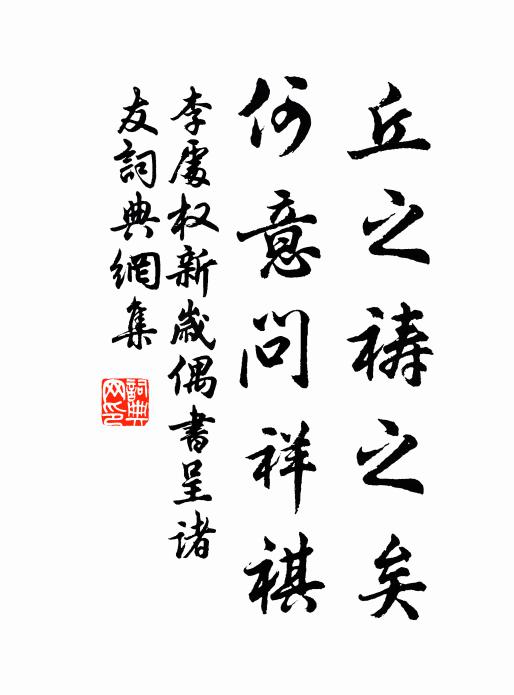 丘之祷之矣
何意问祥祺
李處权新歲偶書呈诸
友詞典網集
詞典
网印